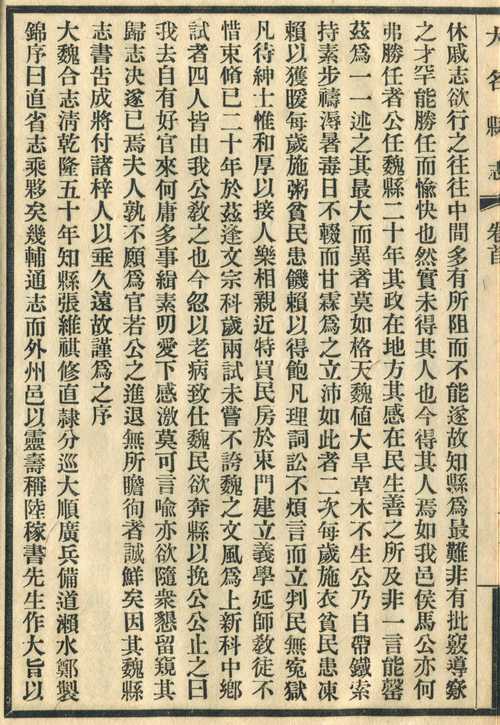 大名縣志
卷首
休戚志欲行之往往中間多有所阻而不能遂故知縣為最難非有批竅導窾
之才罕能勝任而愉快也然實未得其人也今得其人焉如我邑侯馬公亦何
弗勝任者公任魏縣二十年其政在地方其感在民生善之所及非一言能罄
茲為一一述之其最大而異者莫如格天魏値大旱草木不生公乃自帶鐵索
持素步禱溽暑毒日不輟而甘霖為之立沛如此者二次每歲施衣貧民患凍
賴以獲暖每歲施粥貧民患饑賴以得飽凡理詞訟不煩言而立判民無寃獄
凡待紳士惟和厚以接人樂相親近特買民房於東門建立義學延師教徒不
惜束脩已二十年於茲逢文宗科歲兩試未嘗不誇魏之文風為上新科中鄉
試者四人皆由我公教之也今忽以老病致仕魏民欲奔縣以挽公公止之曰
我去自有好官來何庸多事緝素叨愛下感激莫可言喻亦欲隨衆懇留窺其
歸志決遂已焉夫人孰不願為官若公之進退無所瞻徇者誠鮮矣因其魏縣
志書告成將付諸梓人以垂久遠故謹為之序
大魏合志淸乾隆五十年知縣張維祺修直隸分巡大順廣兵備道瀨水鄭製
錦序曰直省志乘夥矣幾輔通志而外州邑以靈壽稱陸稼書先生作大旨以